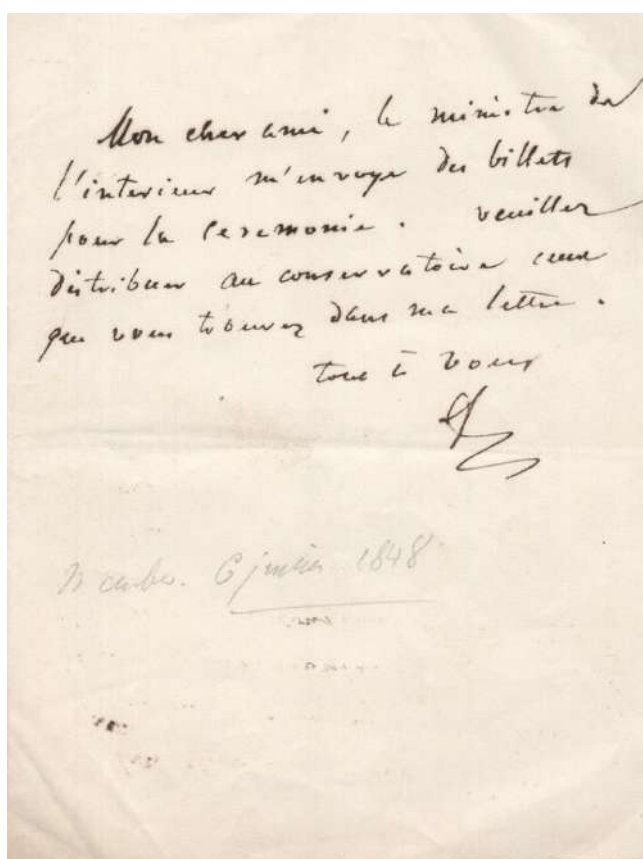 Mon cher ami, le ministre de
l'interieur m'envoye des billets
pour la ceremonie. veuillez
distribuer au conservatoire ceux
que vous trouvez dans ma lettre.
tout à vous
6 janvier 1848